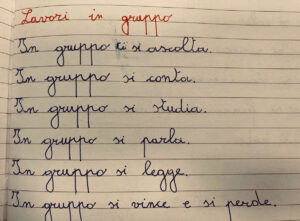 Lavori in gruppo
In gruppo si ascolta.
In gruppo si conta.
In gruppo si studia.
In gruppo si parla.
In gruppo si legge.
In gruppo si vince e si perde.